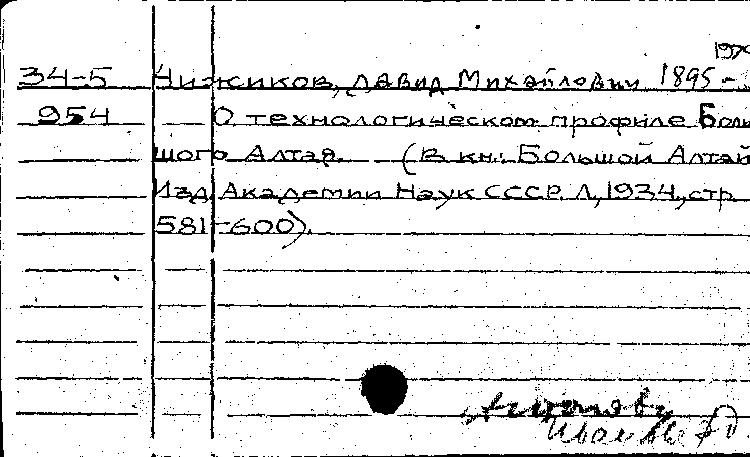 34-5 Чижиков, Давид Михайлович 1895-
954 О технологическом профиле Боль
шого Алтая. (В кн.: Большой Алтай
Изд. Академии Наук СССР. Л, 1934, стр
581-600).